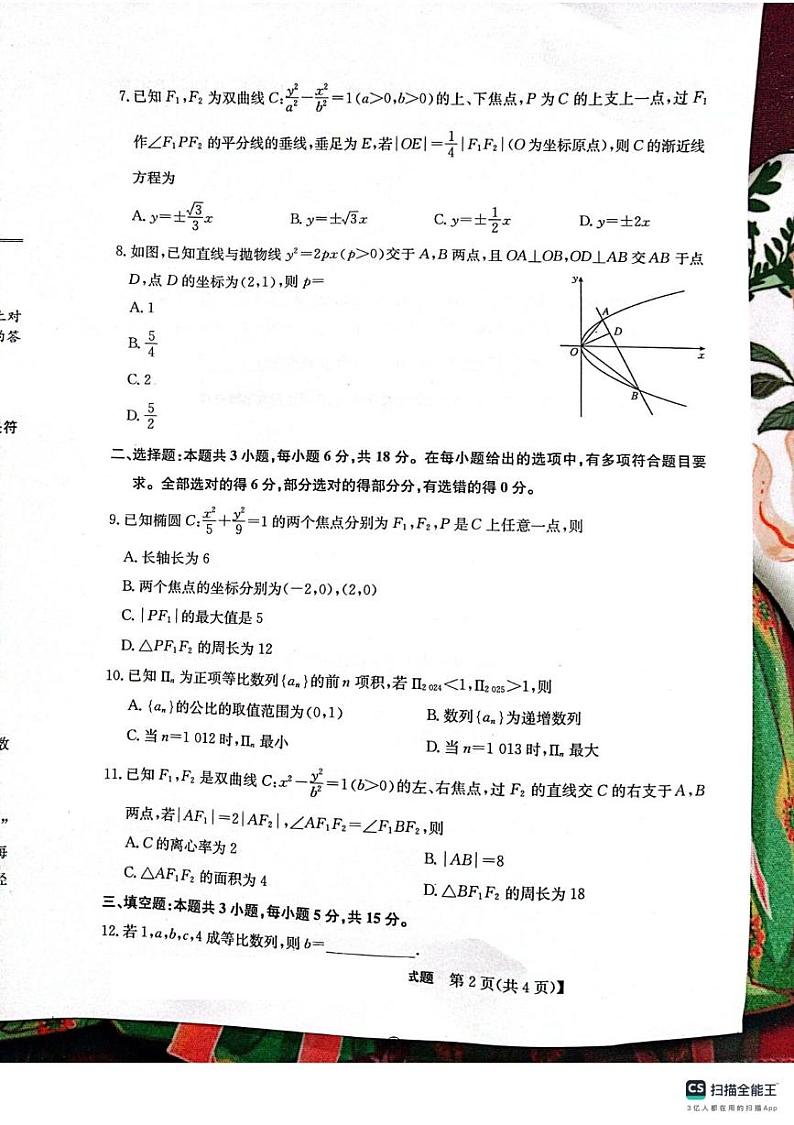 7.已知 F₁,F₂ 为双曲线 C:y²/a²-x²/b²=1(a>0,b>0)的上、下焦点,P 为 C 的上支上一点,过 F₁
作∠F₁PF₂ 的平分线的垂线,垂足为 E,若|OE|=1/4|F₁F₂|(O 为坐标原点),则 C 的渐近线
方程为
A. y=±√3/3x B. y=±√3x C. y=±1/2x D. y=±2x
8.如图,已知直线与抛物线 y²=2px(p>0)交于 A,B 两点,且 OA⊥OB,OD⊥AB 交 AB 于点
D,点 D 的坐标为(2,1),则 p=
A. 1
B. 5/4
C. 2
D. 5/2
y
A
D
O
x
B
二、选择题:本题共 3 小题,每小题 6 分,共 18 分。在每小题给出的选项中,有多项符合题目要
求。全部选对的得 6 分,部分选对的得部分分,有选错的得 0 分。
9.已知椭圆 C:x²/5+y²/9=1 的两个焦点分别为 F₁,F₂,P 是 C 上任意一点,则
A. 长轴长为 6
B. 两个焦点的坐标分别为(-2,0),(2,0)
C. |PF₁|的最大值是 5
D. △PF₁F₂ 的周长为 12
10. 已知 Πₙ 为正项等比数列{aₙ}的前 n 项积,若 Π₂ ₀₂₄<1,Π₂ ₀₂₅>1,则
A. {aₙ}的公比的取值范围为(0,1) B. 数列{aₙ}为递增数列
C. 当 n=1 012 时,Πₙ 最小 D. 当 n=1 013 时,Πₙ 最大
11. 已知 F₁,F₂ 是双曲线 C:x²-y²/b²=1(b>0)的左、右焦点,过 F₂ 的直线交 C 的右支于 A,B
两点,若|AF₁|=2|AF₂|,∠AF₁F₂=∠F₁BF₂,则
A. C 的离心率为 2 B. |AB|=8
C. △AF₁F₂ 的面积为 4 D. △BF₁F₂ 的周长为 18
三、填空题:本题共 3 小题,每小题 5 分,共 15 分。
12. 若 1,a,b,c,4 成等比数列,则 b=________.
试题 第 2 页(共 4 页)】
对
答
符
数
”
每
CS 扫描全能王
3亿人都在用的扫描App